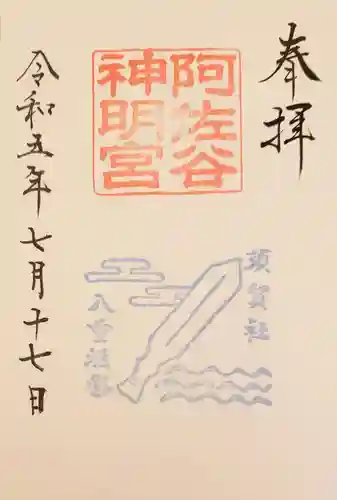 奉拝
阿佐谷
神明宮
須賀社
八雲祖霊
令和五年七月十七日